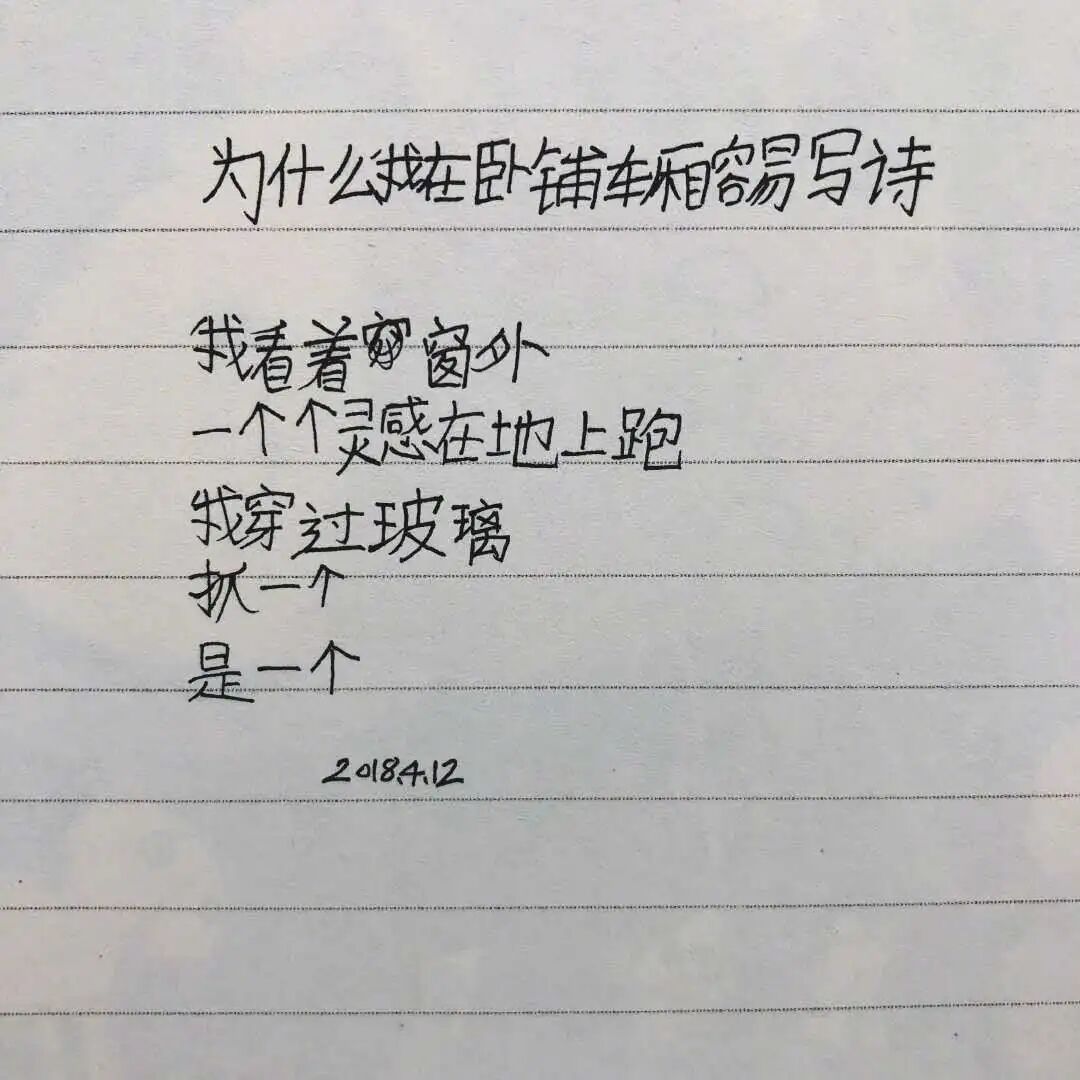 为什么我在卧铺车厢容易写诗
我看着窗外
一个个灵感在地上跑
我穿过玻璃
抓一个
是一个
2018.4.12